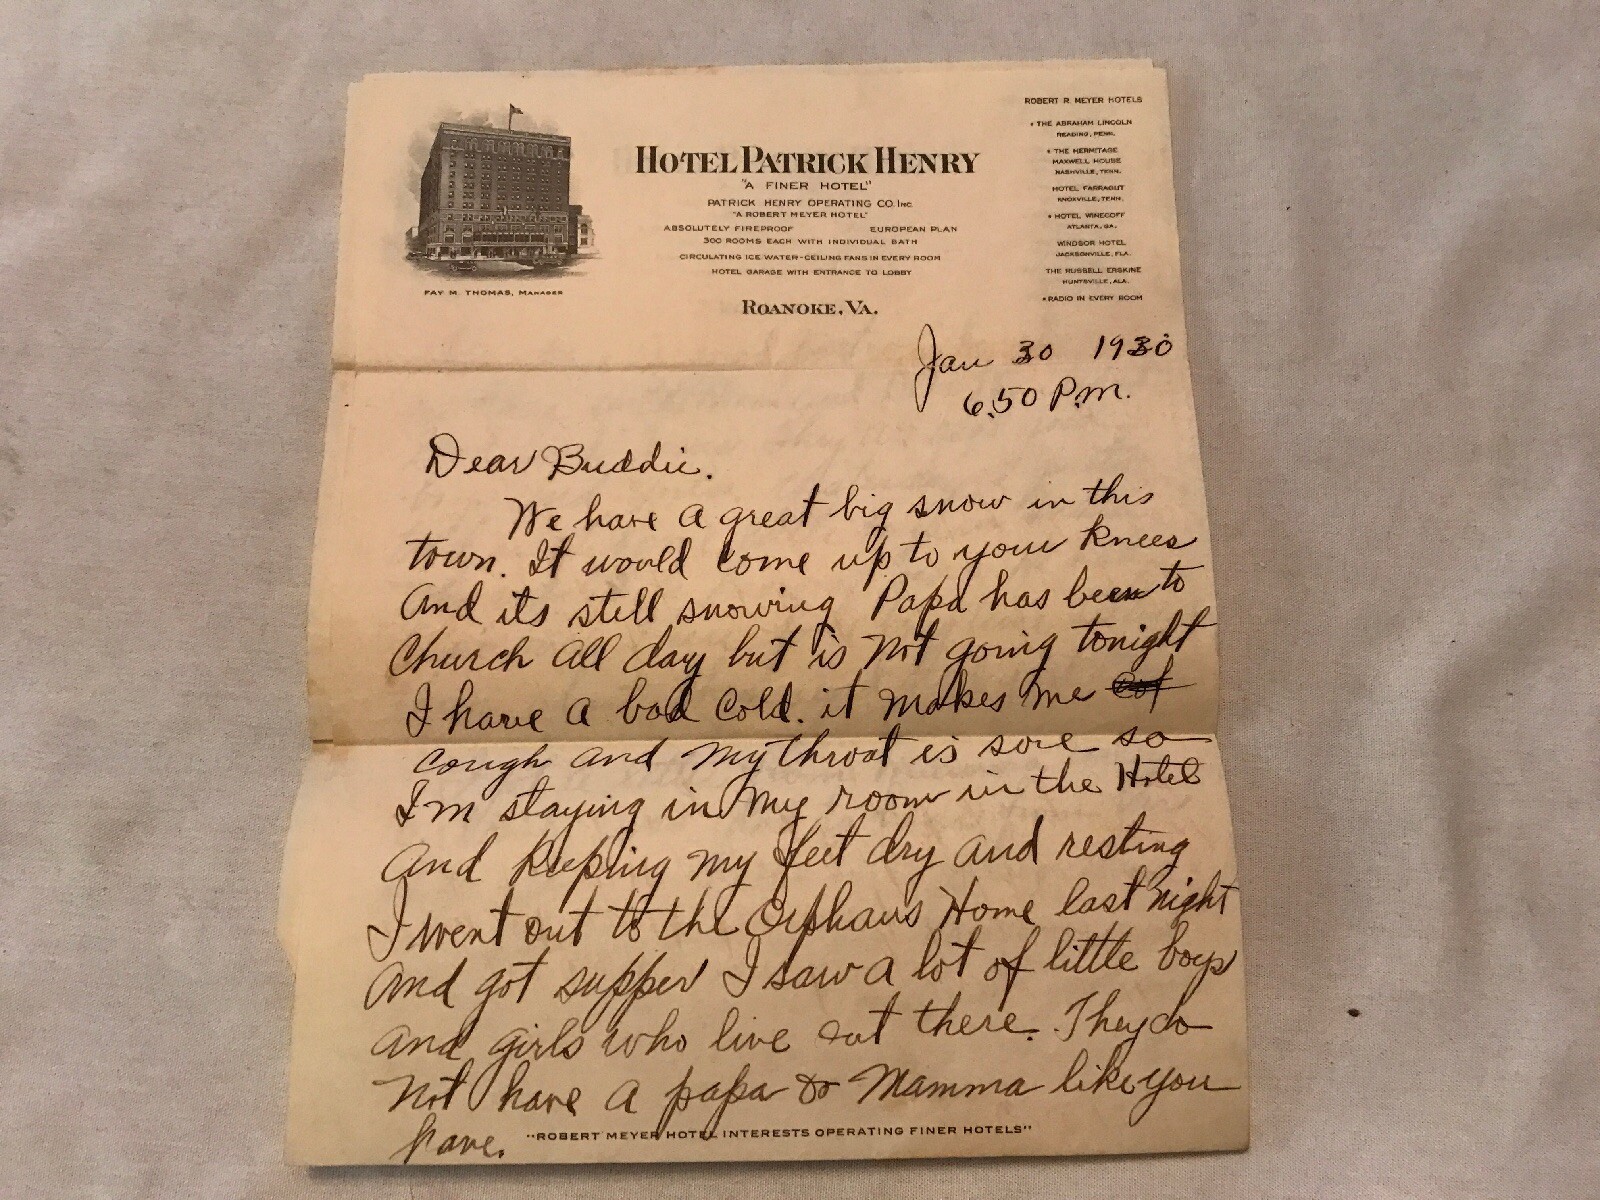 HOTEL PATRICK HENRY
"A FINER HOTEL"
PATRICK HENRY OPERATING CO. INC.
"A ROBERT MEYER HOTEL"
ABSOLUTELY FIREPROOF EUROPEAN PLAN
300 ROOMS EACH WITH INDIVIDUAL BATH
CIRCULATING ICE WATER-CEILING FANS IN EVERY ROOM
HOTEL GARAGE WITH ENTRANCE TO LOBBY
ROANOKE, VA.
FAY M. THOMAS, MANAGER
ROBERT R. MEYER HOTELS
* THE ABRAHAM LINCOLN
READING, PENN.
* THE HERMITAGE
MAXWELL HOUSE
NASHVILLE, TENN.
HOTEL FARRAGUT
KNOXVILLE, TENN.
* HOTEL WINECOFF
ATLANTA, GA.
WINDSOR HOTEL
JACKSONVILLE, FLA.
THE RUSSELL ERSKINE
HUNTSVILLE, ALA.
* RADIO IN EVERY ROOM
Jan 30 1930
6.50 P.m.
Dear Buddie.
We have a great big snow in this
town. It would come up to your knees
And its still snowing Papa has been to
Church all day but is not going tonight
I have a bad cold. it makes me
cough and my throat is sore so
I'm staying in my room in the Hotel
And keeping my feet dry and resting
I went out to the Orphans Home last night
And got supper I saw a lot of little boys
and girls who live out there. They do
not have a papa or Mamma like you
have.
"ROBERT MEYER HOTEL INTERESTS OPERATING FINER HOTELS"